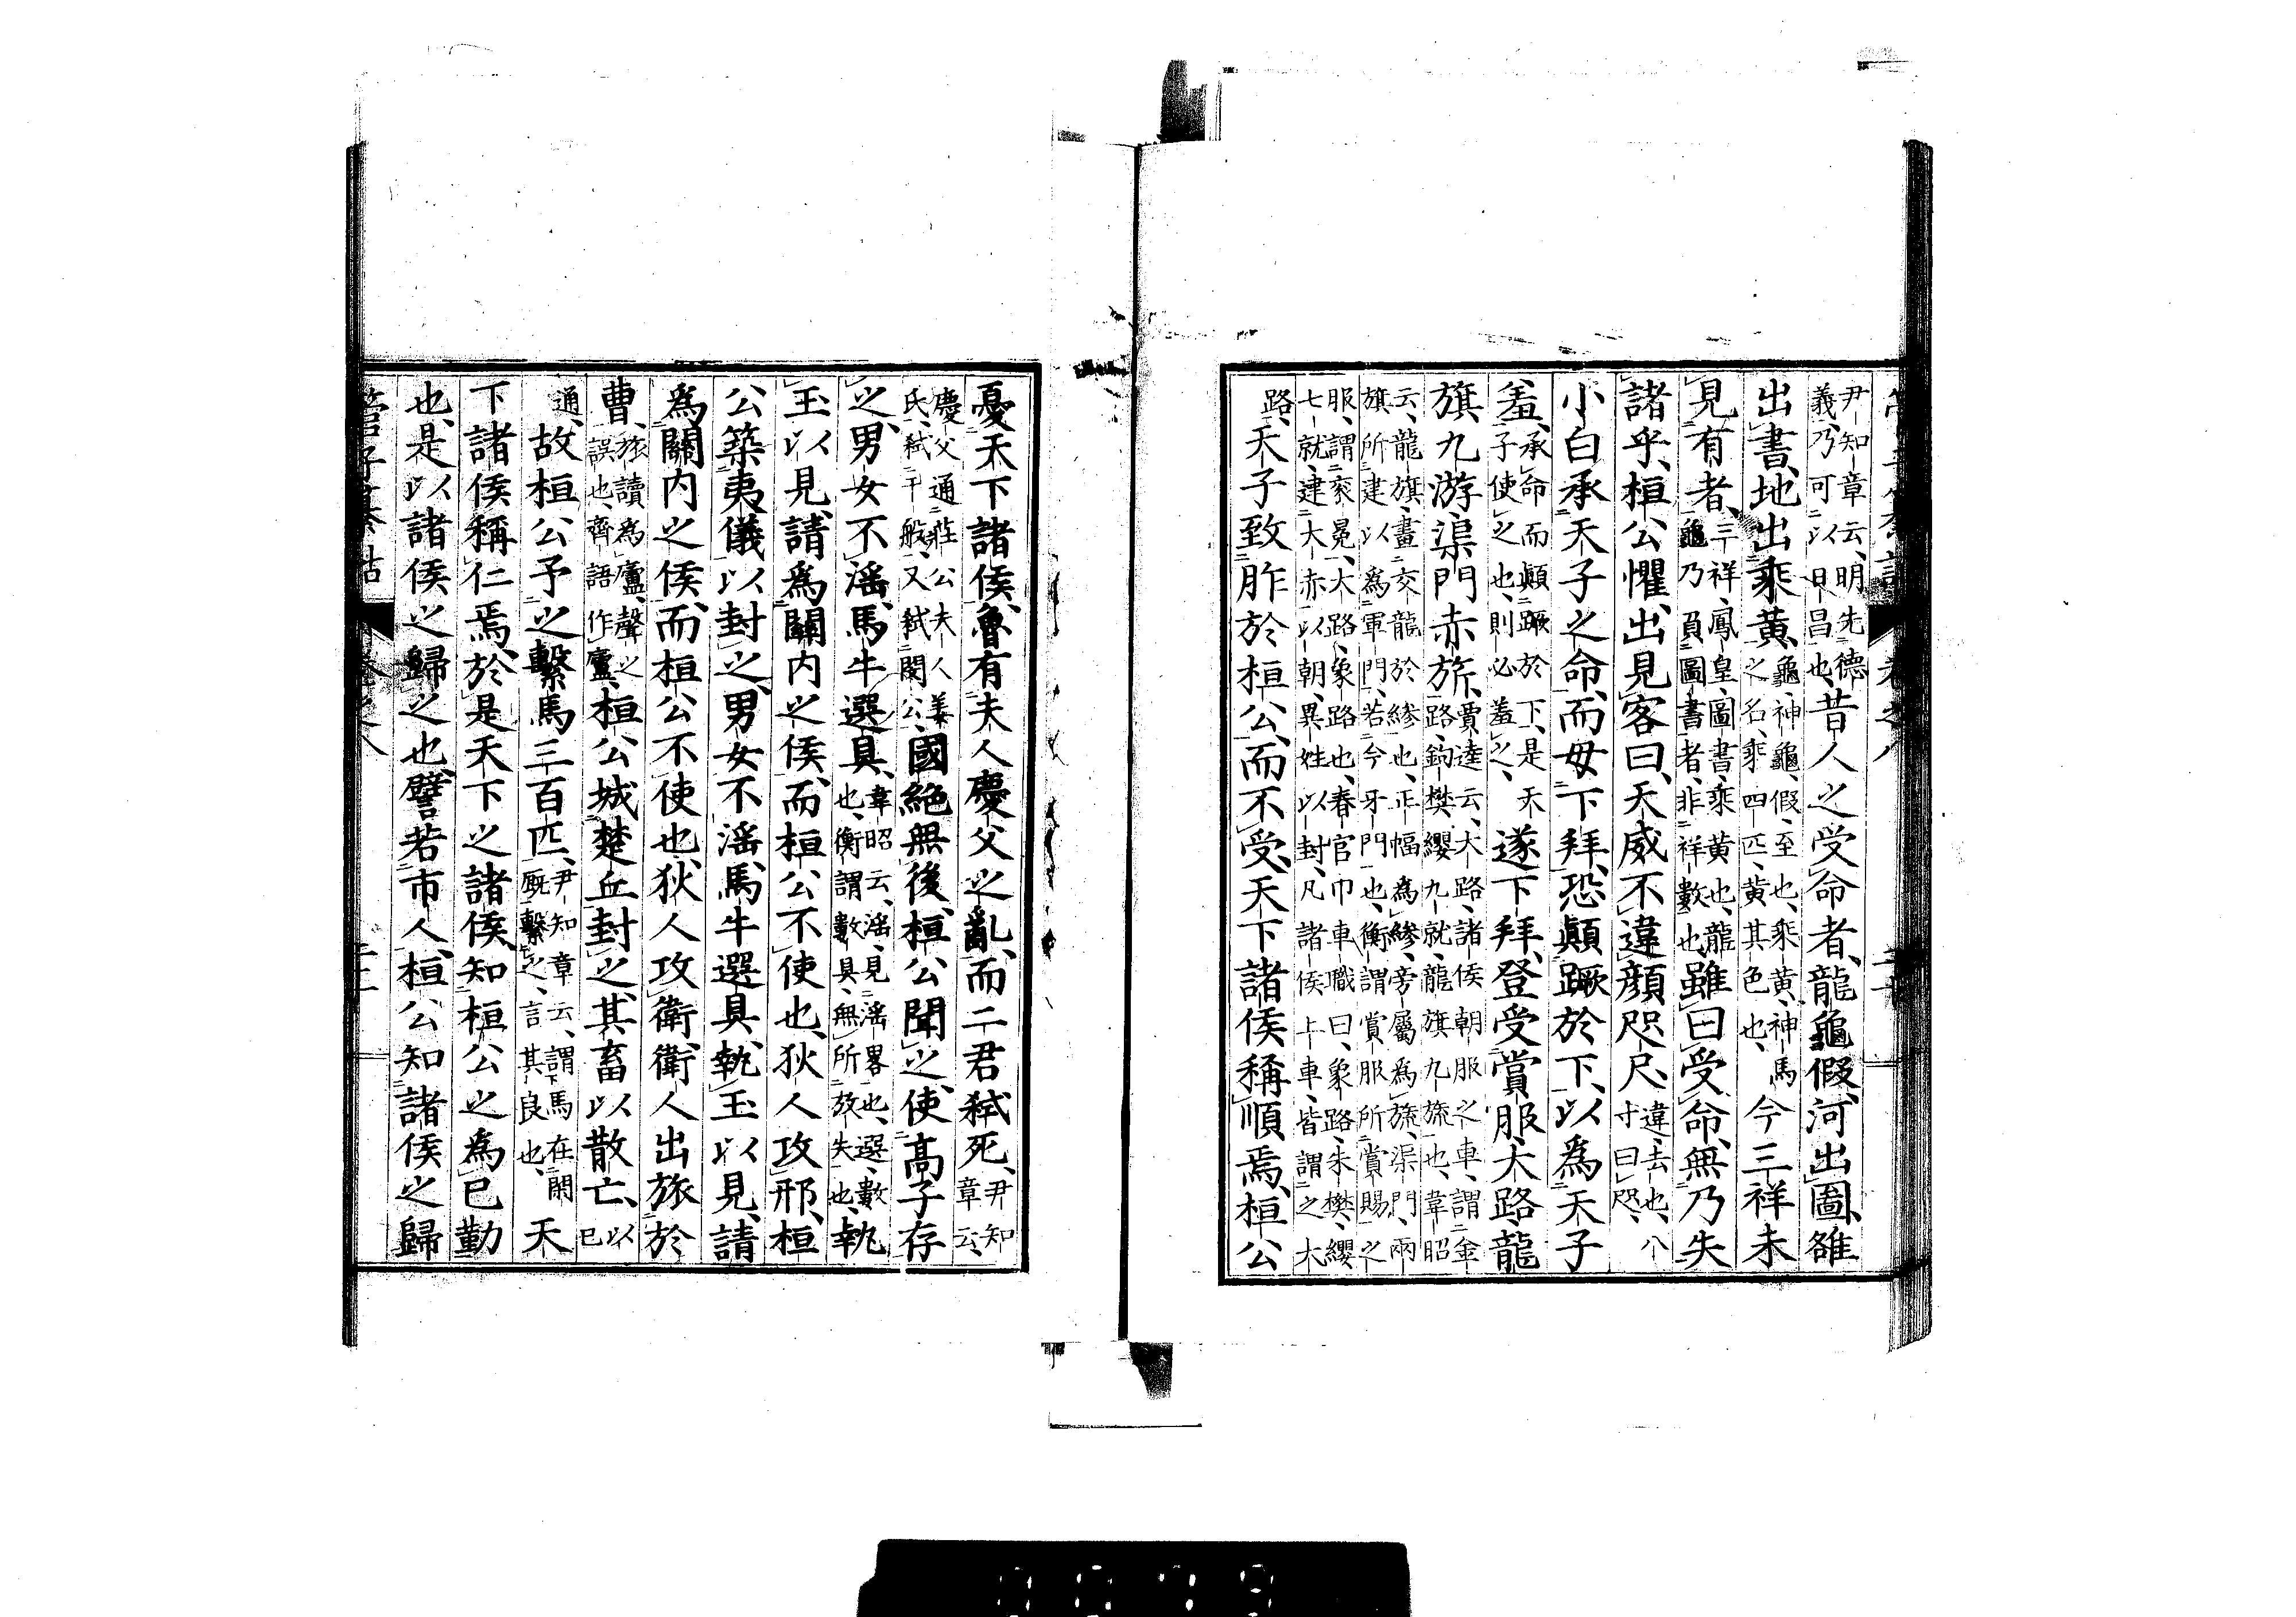 尹知章云、明先德
義、乃可以日昌也、
昔人之受命者、龍龜假、河出圖、雒
出書、地出乘黃、
龜、神龜、假、至也、乘黃、神馬
之名、乘四匹、黃其色也、
今三祥未
見有者、
三祥、鳳皇、圖書、乘黃也、龍
龜乃負圖書者、非祥數也、
雖曰受命、無乃失
諸乎、桓公懼、出見客曰、天威不違顏咫尺、
違、去也、八
寸曰咫、
小白承天子之命、而毋下拜、恐顛蹶於下、以爲天子
羞、
承命而顛蹶於下、是天
子使之也、則必羞之、
遂下拜、登受賞服、大路龍
旗九游、渠門赤旂、
賈逵云、大路、諸侯朝服之車、謂金
路、鉤樊纓九就、龍旗九旒也、韋昭
云、龍旗、畫交龍於縿也、正幅爲縿、旁屬爲旒、渠門、兩
旗所建以爲軍門、若今牙門也、衡謂賞服、所賞賜之
服、謂袞冕、大路、象路也、春官巾車職曰、象路、朱樊纓
七就、建大赤以朝、異姓以封、凡諸侯上車、皆謂之大
路、
天子致胙於桓公、而不受、天下諸侯稱順焉、桓公
憂天下諸侯、魯有夫人慶父之亂、而二君弑死、
尹知
章云、
慶父通莊公夫人姜
氏、弑子般、又弑閔公、
國絕無後、桓公聞之、使高子存
之、男女不淫、馬牛選具、
韋昭云、淫、見淫畧也、選、數
也、衡謂數具、無所放失也、
執
玉以見、請爲關內之侯、而桓公不使也、狄人攻邢、桓
公築夷儀以封之、男女不淫、馬牛選具、執玉以見、請
爲關內之侯、而桓公不使也、狄人攻衛、衛人出旅於
曹、
旅讀爲廬、聲之
誤也、齊語作廬、
桓公城楚丘封之、其畜以散亡、
以
已
通、
故桓公予之繫馬三百匹、
尹知章云、謂馬在閑
廐繫之、言其良也、
天
下諸侯稱仁焉、於是天下之諸侯、知桓公之爲已勤
也、是以諸侯之歸之也、譬若市人、桓公知諸侯之歸
管子纂詁
卷之八